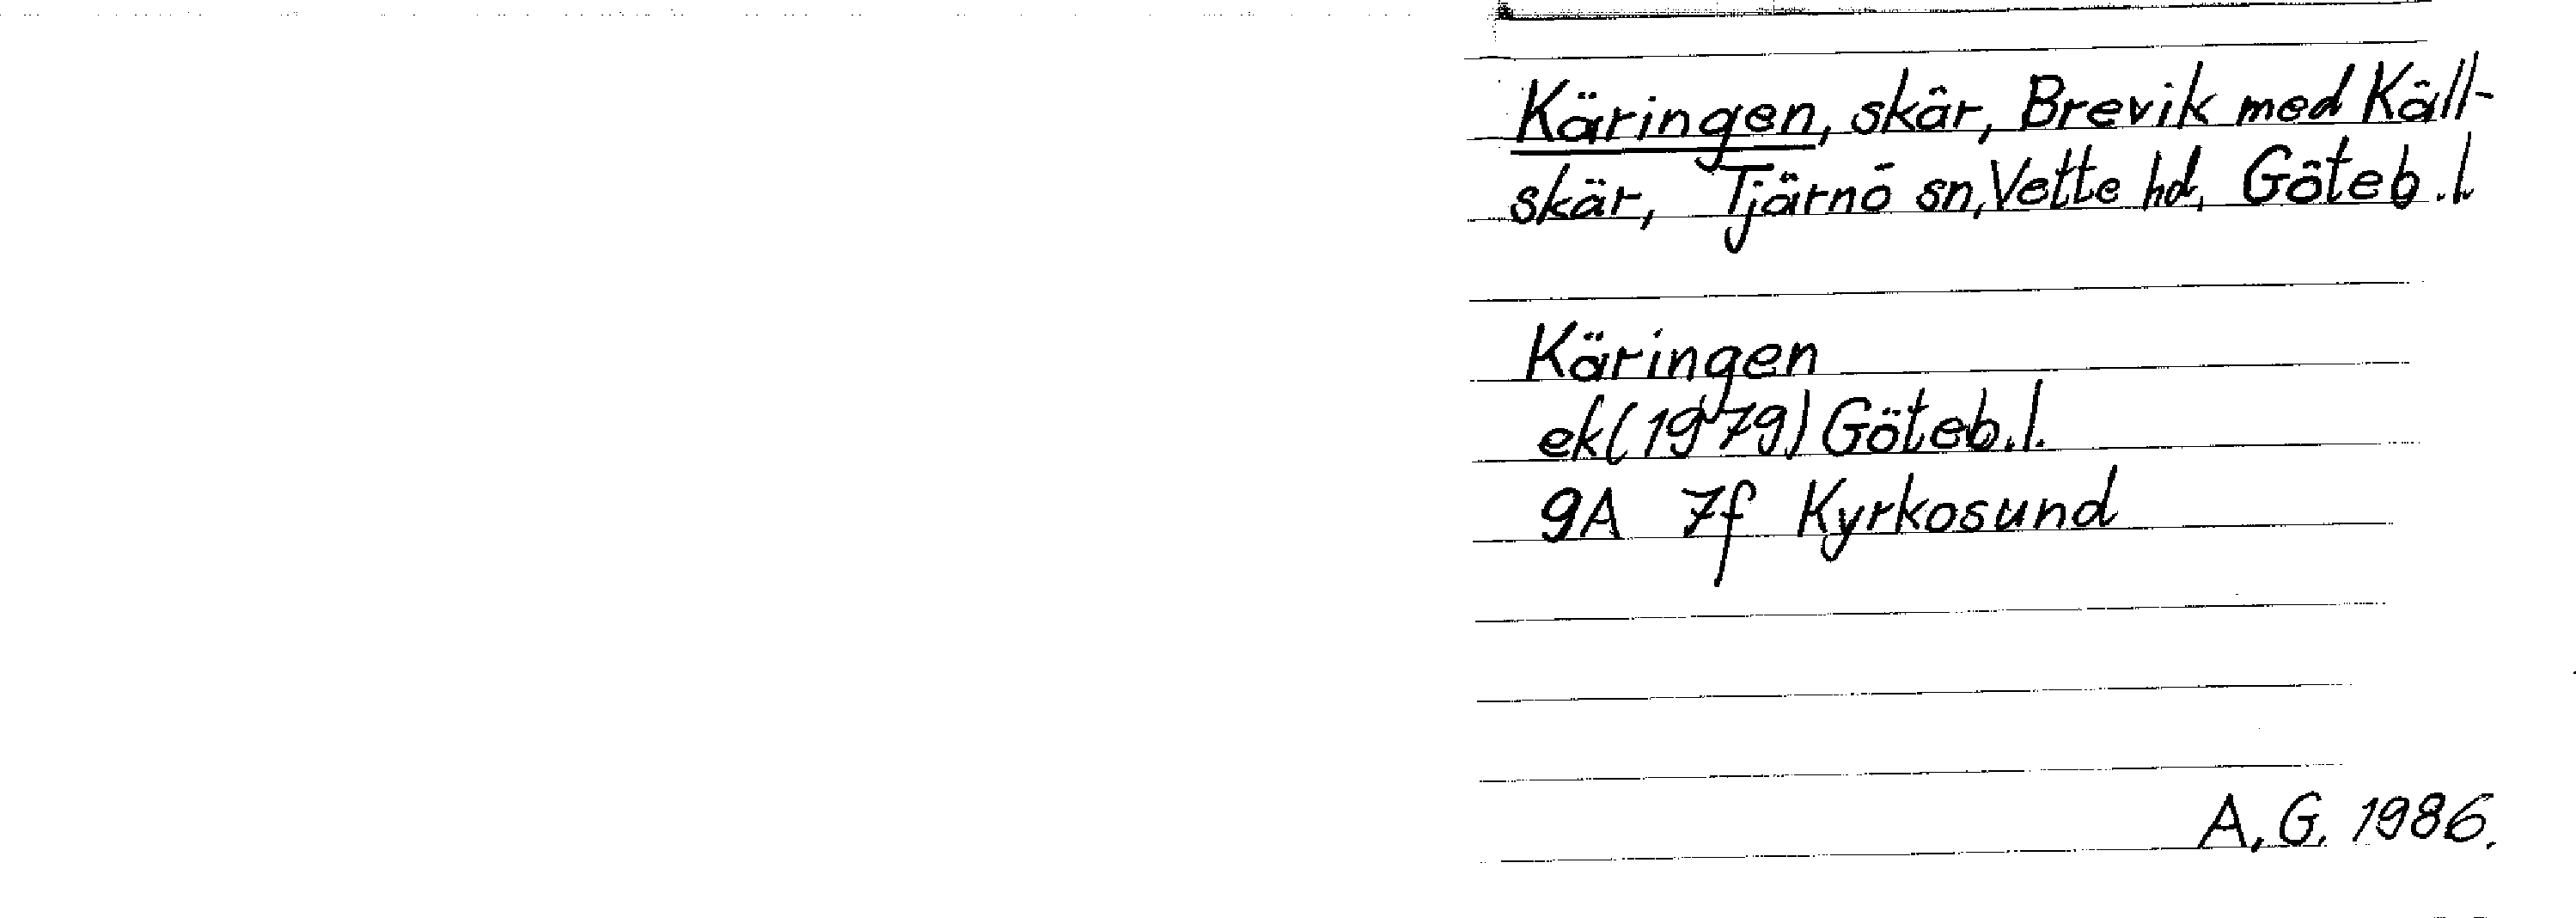 Käringen, skär, Brevik med Käll-
skär, Tjärnö sn, Vette hd, Göteb.l.
Käringen
ek(1979) Göteb.l.
9A 7f Kyrkosund
A.G. 1986.